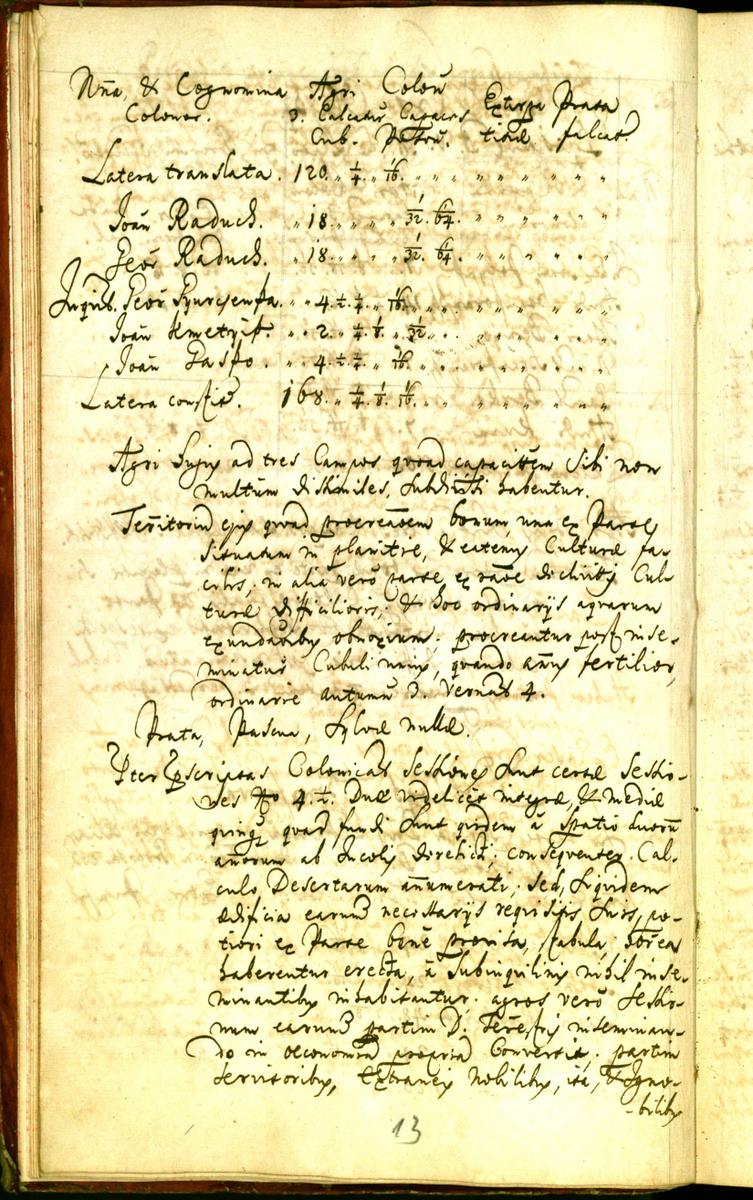 Nna, & Cognomina Agri Colon Extirpa Prata
Colonor. 3. Calcatur Capaces titiæ falcat.
Cub. Poson.
Latera translata. 120. „ 1/4 „ 1/16 „ „ „ „ „ „ „
Joan Raduch. „ 18 „ „ „ 1/32. 6/64. „ „ „ „ „
Geor Raduch. „ 18 „ „ „ 1/32. 6/64. „ „ „ „ „
Inquil. Geor „ „ 4. 1/2. 1/4. „ 1/16. „ „ „ „ „ „
Joan „ „ 2. „ 1/4. 1/8. „ 1/32. „ „ „ „ „
Joan „ „ 4. 1/2. 1/4. „ 1/16. „ „ „ „ „ „
Latera 168. „ 1/4. 1/8. 1/16. „ „ „ „ „ „
Agri hujus ad tres Campos quoad capacitem sibi non
multum dissimiles, subdivisi habentur.
Territoriu ejus quoad procreaoem bonum, una ex Parte
situatum in planitie, & eatenus Culturæ fa-
cilis, in alia vero parte, ex raoe declivitis Cul-
turæ difficilioris; & hoc ordinarijs aquarum
exundaoibus obnoxium; procreantur post inse-
minatur Cubuli unius, quando annus fertilior,
ordinarie autumn 3. Vernal 4.
Prata, Pascua, Sylvæ nullæ.
Pter Pscriptas Colonicales Sessiones sunt certæ Sessio-
nes Nro 4. 1/2. Duæ videlicet integræ, & mediæ
quinque quoad fundi sunt quidem a spatio duoru
annorum ab Incolis derelicti; consequenter Cal-
culo Desertarum annumerati; sed, siquidem
ædificia earum necessarijs requisitis suis, po-
tiori ex Parte bene provisa, stabula, horrea
haberentur erecta, a Subinquilinis nihil inse-
minantibus inhabitantur. agros vero Sessio-
num earum partim D. Terrestris inseminan-
do in oeconomia propria Convertit. partim
servitoribus, extraneis Nobilibus, ita, & Igno-
-bilibus
13